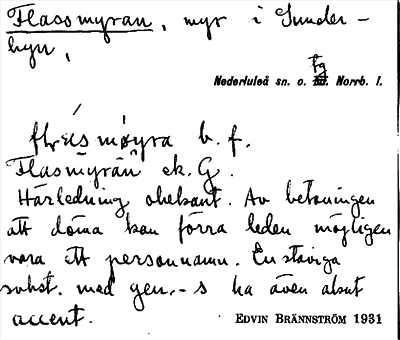 Flassmyran, myr i Sunder-
byn,
Nederluleå sn. o. tg Norrb. l.
b. f.
Flasmyran ek. G.
Härledning obekant. Av betoningen
att döma kan förra leden möjligen
vara ett personnamn. Enstaviga
subst. med gen.-s ha även akut
accent.
EDVIN BRÄNNSTRÖM 1931